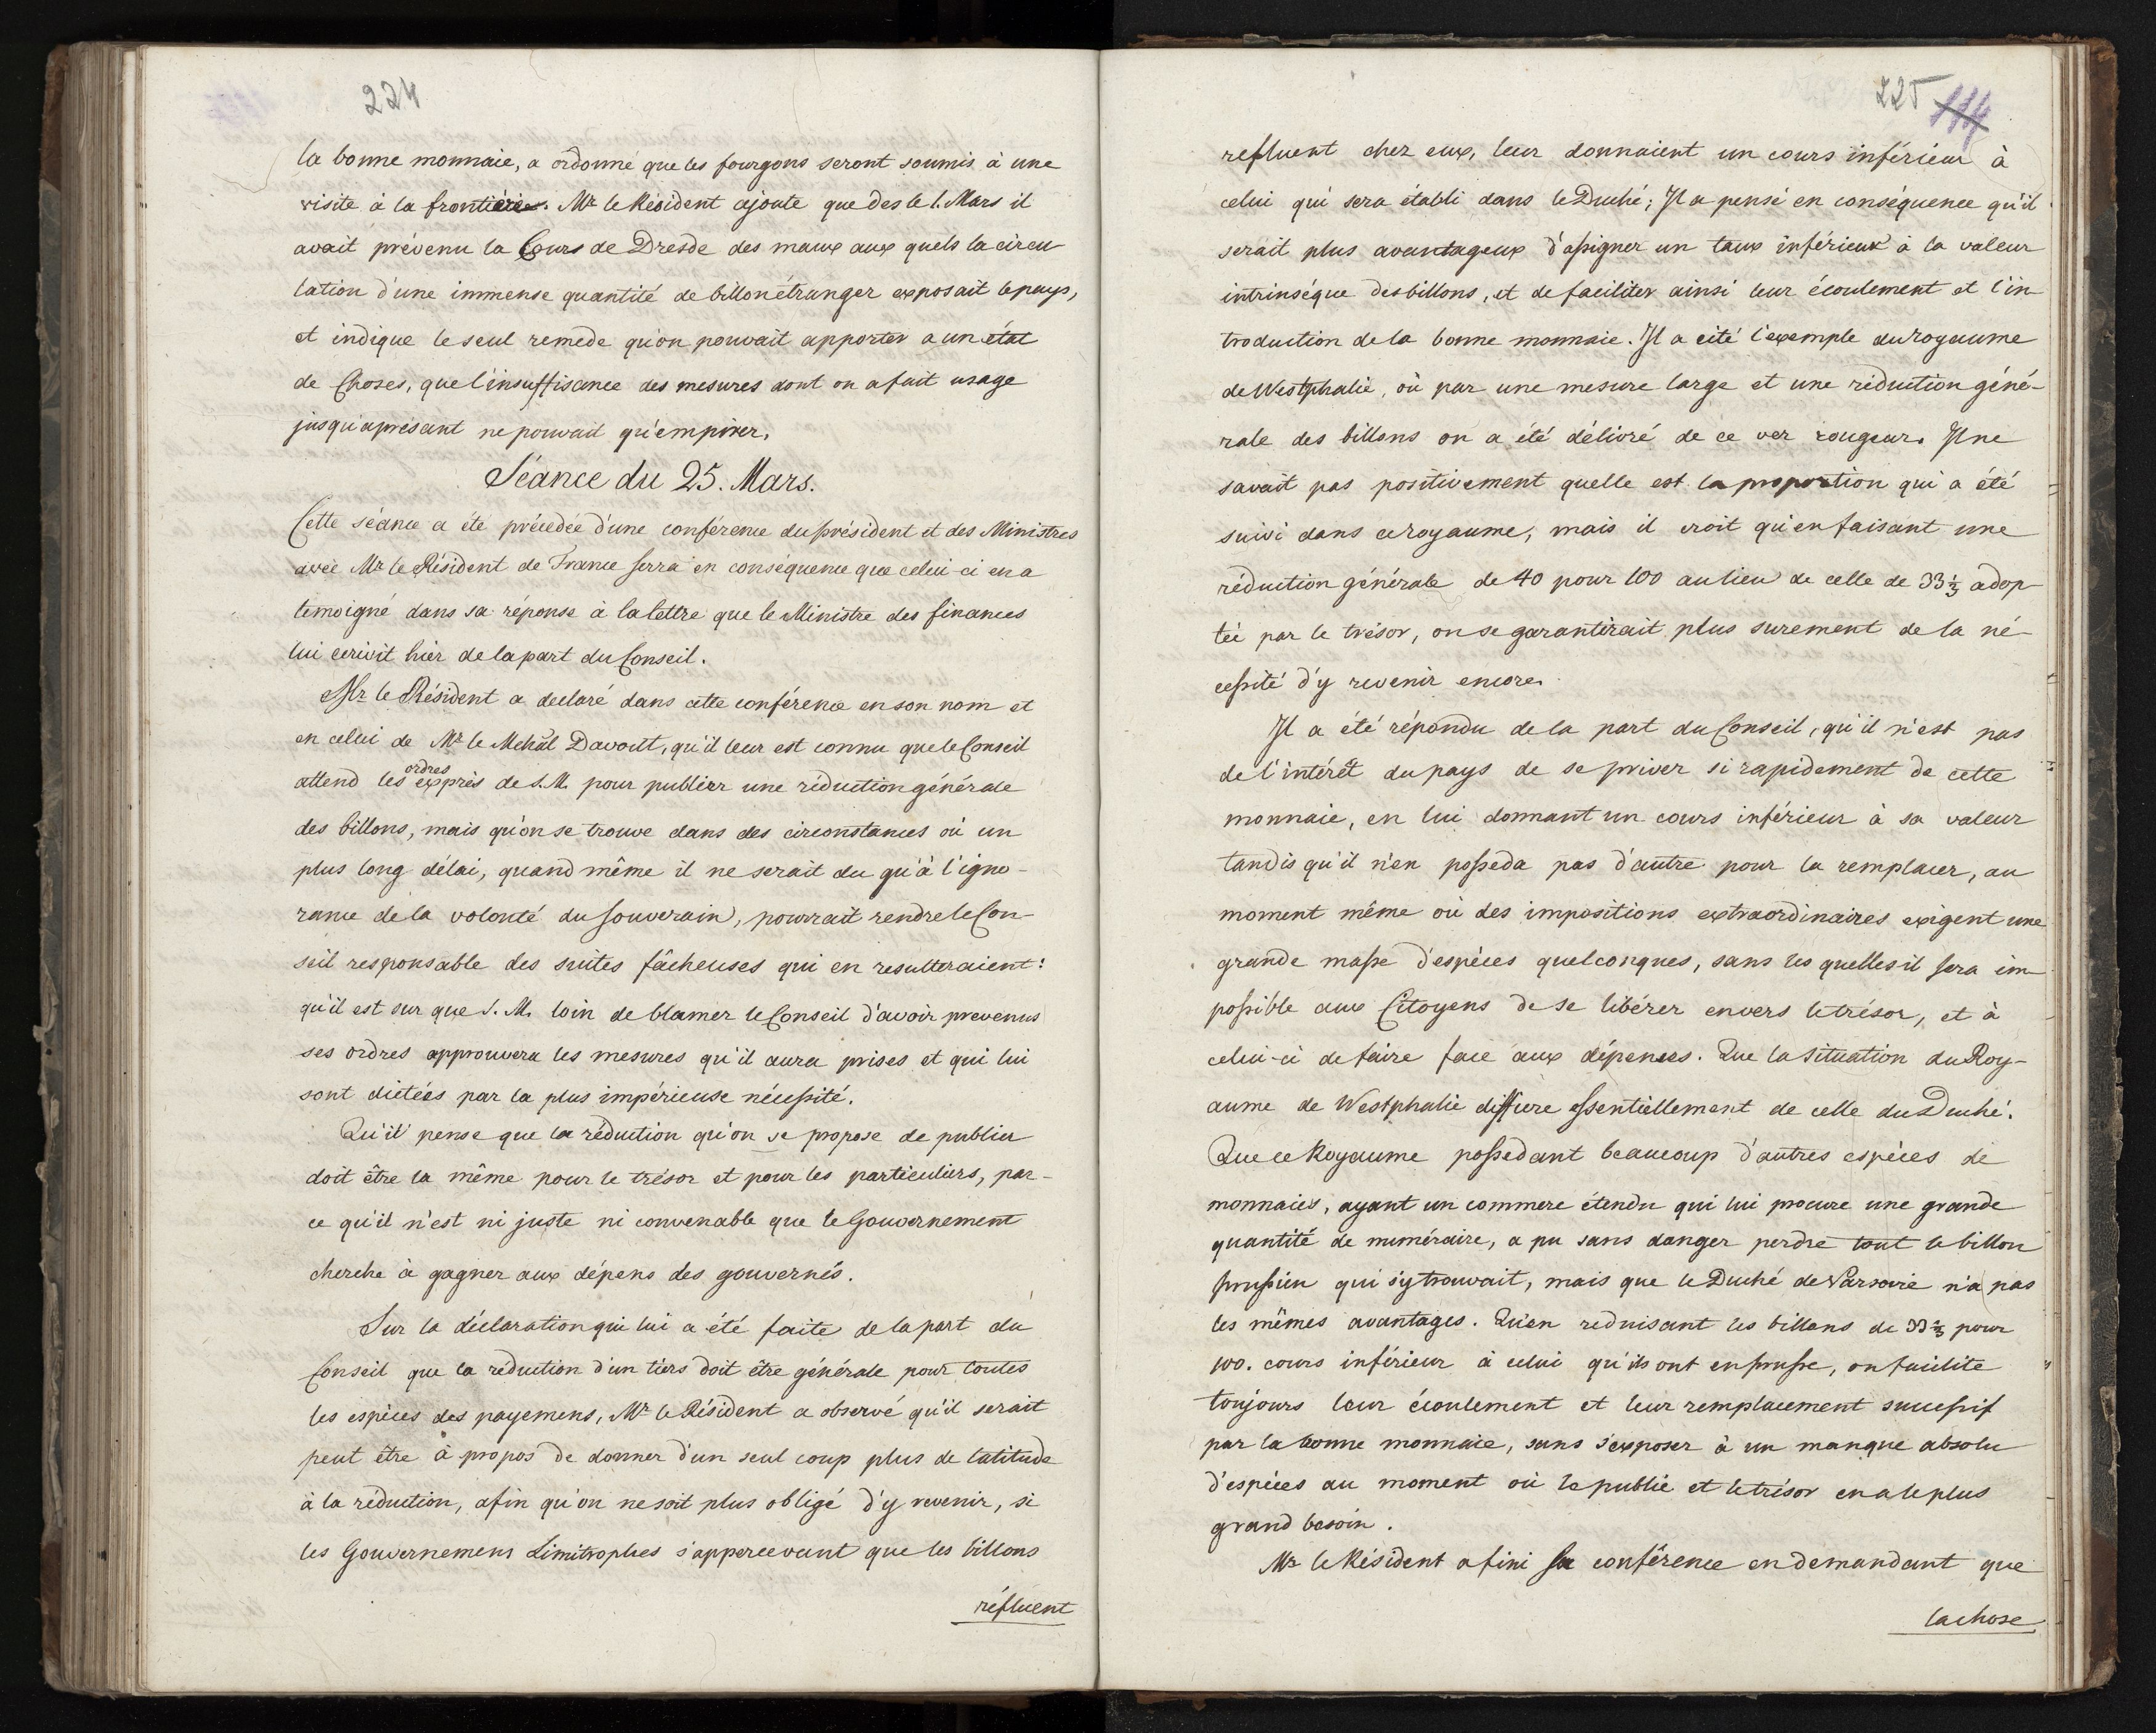 224
la bonne monnaie, a ordonné que les fourgons seront soumis à une
visite à la frontière. Mr le Résident ajoute que des le 1. Mars il
avait prévenu la Cours de Dresde des maux aux quels la circu
lation d'une immense quantité de billon étranger exposait le pays,
et indique le seul remede qu'on pouvait apporter a un état
de Choses, que l'insuffisance des mesures dont on a fait usage
jusqu'aprésent ne pouvait qu'empirer.
Séance du 25. Mars.
Cette séance a été précedée d'une conférence du président et des Ministres
avec Mr le Résident de France Serra en conséquence que celui-ci en a
temoigné dans sa réponse à la lettre que le Ministre des finances
lui ecrivit hier de la part du Conseil.
Mr le Résident a declaré dans cette conférence en son nom et
en celui de Mr le Mchal Davout, qu'il leur est connu que le Conseil
attend les ordres exprès de S. M. pour publier une réduction générale
des billons, mais qu'on se trouve dans des circonstances où un
plus long délai, quand même il ne serait du qu'à l'igno-
rance de la volonté du Souverain, pourrait rendre le Con-
seil responsable des suites fâcheuses qui en resulteraient:
qu'il est sur que S. M. loin de blamer le Conseil d'avoir prevenus
ses ordres approuvera les mesures qu'il aura prises et qui lui
sont dictées par la plus impérieuse nécessité.
Qu'il pense que la réduction qu'on se propose de publier
doit être la même pour le trésor et pour les particuliers, par-
ce qu'il n'est ni juste ni convenable que le Gouvernement
cherche à gagner aux dépens des gouvernés.
Sur la déclaration qui lui a été faite de la part du
Conseil que la réduction d'un tiers doit être générale pour toutes
les espèces des payemens, Mr le Résident a observé qu'il serait
peut être à propos de donner d'un seul coup plus de latitude
à la réduction, afin qu'on ne soit plus obligé d'y revenir, si
les Gouvernemens Limitrophes s'appercevant que les billons
réfluent
225 114
refluent chez eux, leur donnaient un cours inférieur à
celui qui sera établi dans le Duché; Il a pensé en conséquence qu'il
serait plus avantageux d'assigner un taux inférieur à la valeur
intrinséque des billons, et de faciliter ainsi leur écoulement et l'in
troduction de la bonne monnaie. Il a cité l'exemple du royaume
de Westphalie, où par une mesure large et une réduction géné-
rale des billons on a été délivré de ce ver rongeur. Il ne
savait pas positivement quelle est la proportion qui a été
suivi dans ce royaume, mais il croit qu'en faisant une
réduction générale de 40 pour 100 au lieu de celle de 33 1/3 adop
tée par le trésor, on se garantirait plus surement de la né-
cessité d'y revenir encore.
Il a été répondu de la part du Conseil, qu'il n'est pas
de l'intérêt du pays de se priver si rapidement de cette
monnaie, en lui donnant un cours inférieur à sa valeur
tandis qu'il n'en posseda pas d'autre pour la remplacer, au
moment même où des impositions extraordinaires exigent une
grande masse d'espèces quelconques, sans les quelles il sera im
possible aux Citoyens de se libérer envers le trésor, et à
celui-ci de faire face aux dépenses. Que la situation du Roy-
aume de Westphalie diffère essentiellement de celle du Duché.
Que ce Royaume possedant beaucoup d'autres espèces de
monnaies, ayant un commerce étendu qui lui procure une grande
quantité de numéraire, a pu sans danger perdre tout le billon
prussien qui s'y trouvait, mais que le Duché de Varsovie n'a pas
les mêmes avantages. Qu'en reduisant les billons de 33 1/3 pour
100. cours inférieur à celui qu'ils ont en prusse, on facilite
toujours leur écoulement et leur remplacement successif
par la bonne monnaie, sans s'exposer à un manque absolu
d'espèces au moment où le public et le trésor en a le plus
grand besoin.
Mr le Résident a fini sa conférence en demandant que
la chose